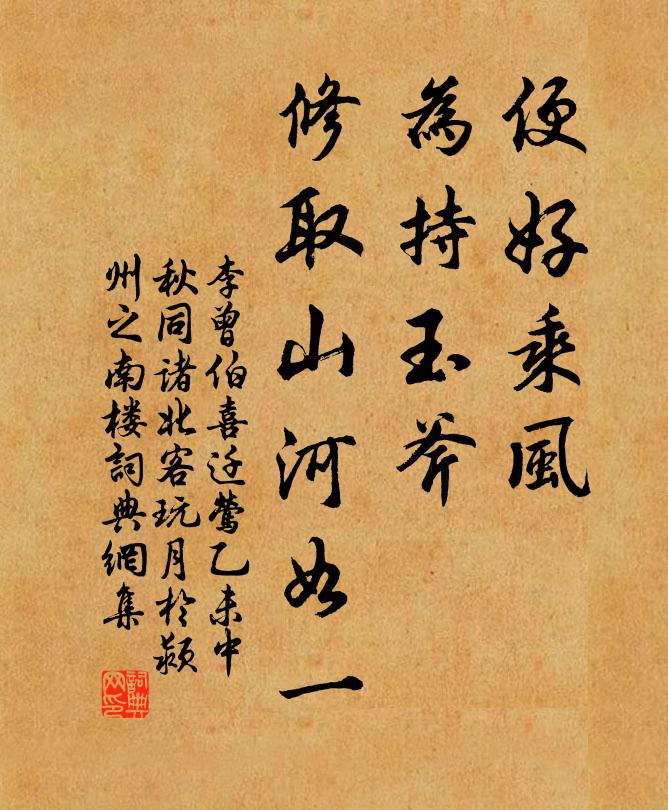 便好乘風
為持玉斧
修取山河如一
李曾伯喜迁鶯乙未中
秋同諸北客玩月於潁
州之南楼詞典網集
詞典网印